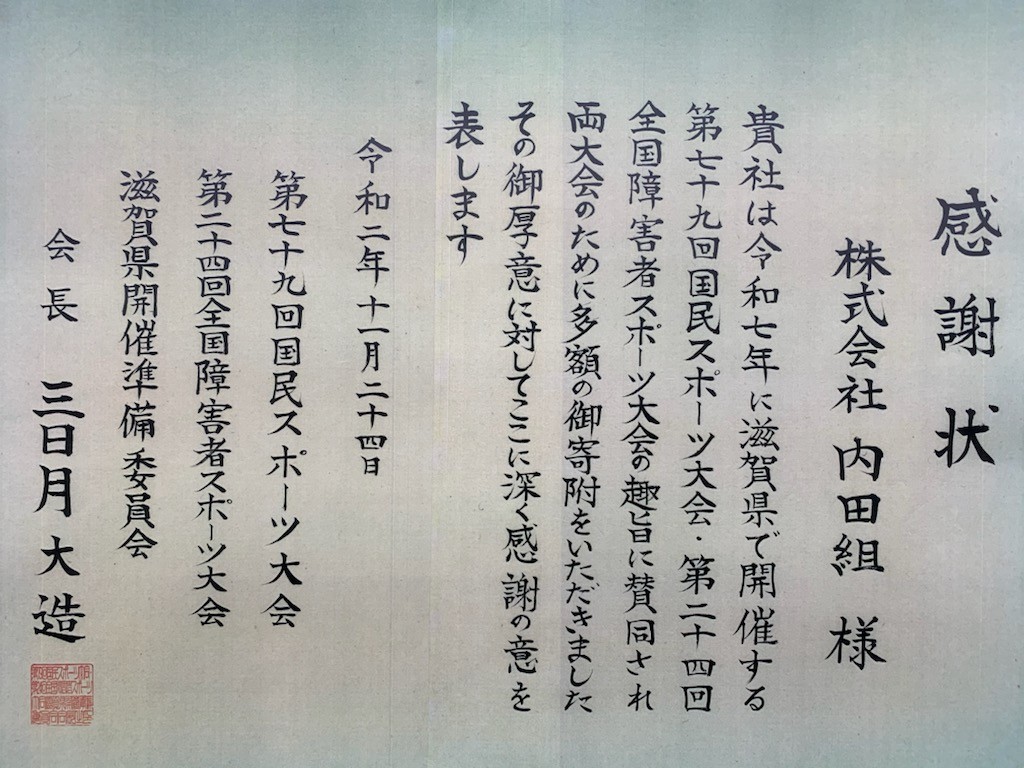 感謝状
株式会社 内田組 様
貴社は令和七年に滋賀県で開催する
第七十九回国民スポーツ大会・第二十四回
全国障害者スポーツ大会の趣旨に賛同され
両大会のために多額の御寄附をいただきました
その御厚意に対してここに深く感謝の意を
表します
令和二年十一月二十四日
第七十九回国民スポーツ大会
第二十四回全国障害者スポーツ大会
滋賀県開催準備委員会
会長 三日月大造